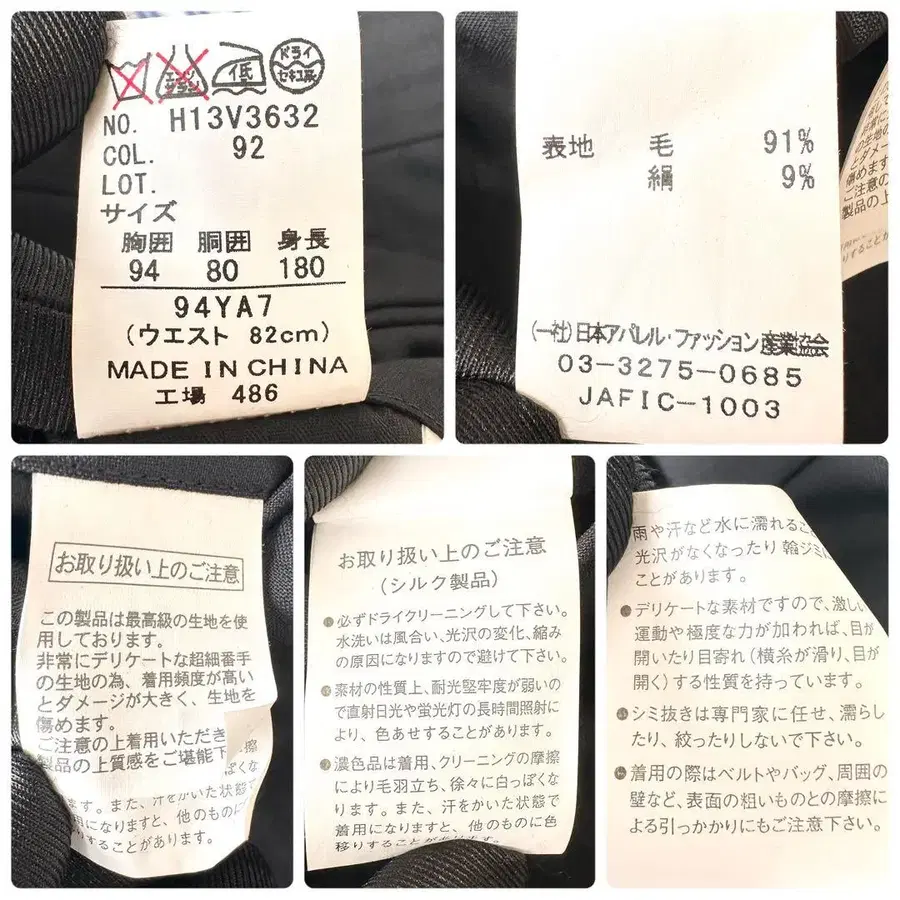 エンソ
サラシ
低
ドライ
セキユ系
NO. H13V3632
COL. 92
LOT.
サイズ
胸囲 胴囲 身長
94 80 180
94YA7
(ウエスト 82cm)
MADE IN CHINA
工場 486
表地 毛 91%
絹 9%
(一社)日本アパレル・ファッション産業協会
03-3275-0685
JAFIC-1003
の生地の
とダメー
傷めます
ご注意の
製品の上
りすることが
お取り扱い上のご注意
この製品は最高級の生地を使
用しております。
非常にデリケートな超細番手
の生地の為、着用頻度が高い
とダメージが大きく、生地を
傷めます。
ご注意の上着用いただき
製品の上質感をご堪能下
擦
っぽくな
ます。また、汗をかいた状態で
用になりますと、他のものに色
りすることがあります。
お取り扱い上のご注意
(シルク製品)
●必ずドライクリーニングして下さい。
水洗いは風合い、光沢の変化、縮み
の原因になりますので避けて下さい。
●素材の性質上、耐光堅牢度が弱いの
で直射日光や蛍光灯の長時間照射に
より、色あせすることがあります。
●濃色品は着用、クリーニングの摩擦
により毛羽立ち、徐々に白っぽくな
ります。また、汗をかいた状態で
着用になりますと、他のものに色
移りすることがあります。
雨や汗など水に濡れるこ
光沢がなくなったり輪ジミに
ことがあります。
●デリケートな素材ですので、激しい
運動や極度な力が加われば、目が
開いたり目寄れ(横糸が滑り、目が
開く)する性質を持っています。
●シミ抜きは専門家に任せ、濡らし
たり、絞ったりしないで下さい。
●着用の際はベルトやバッグ、周囲の
壁など、表面の粗いものとの摩擦に
よる引っかかりにもご注意下さい。